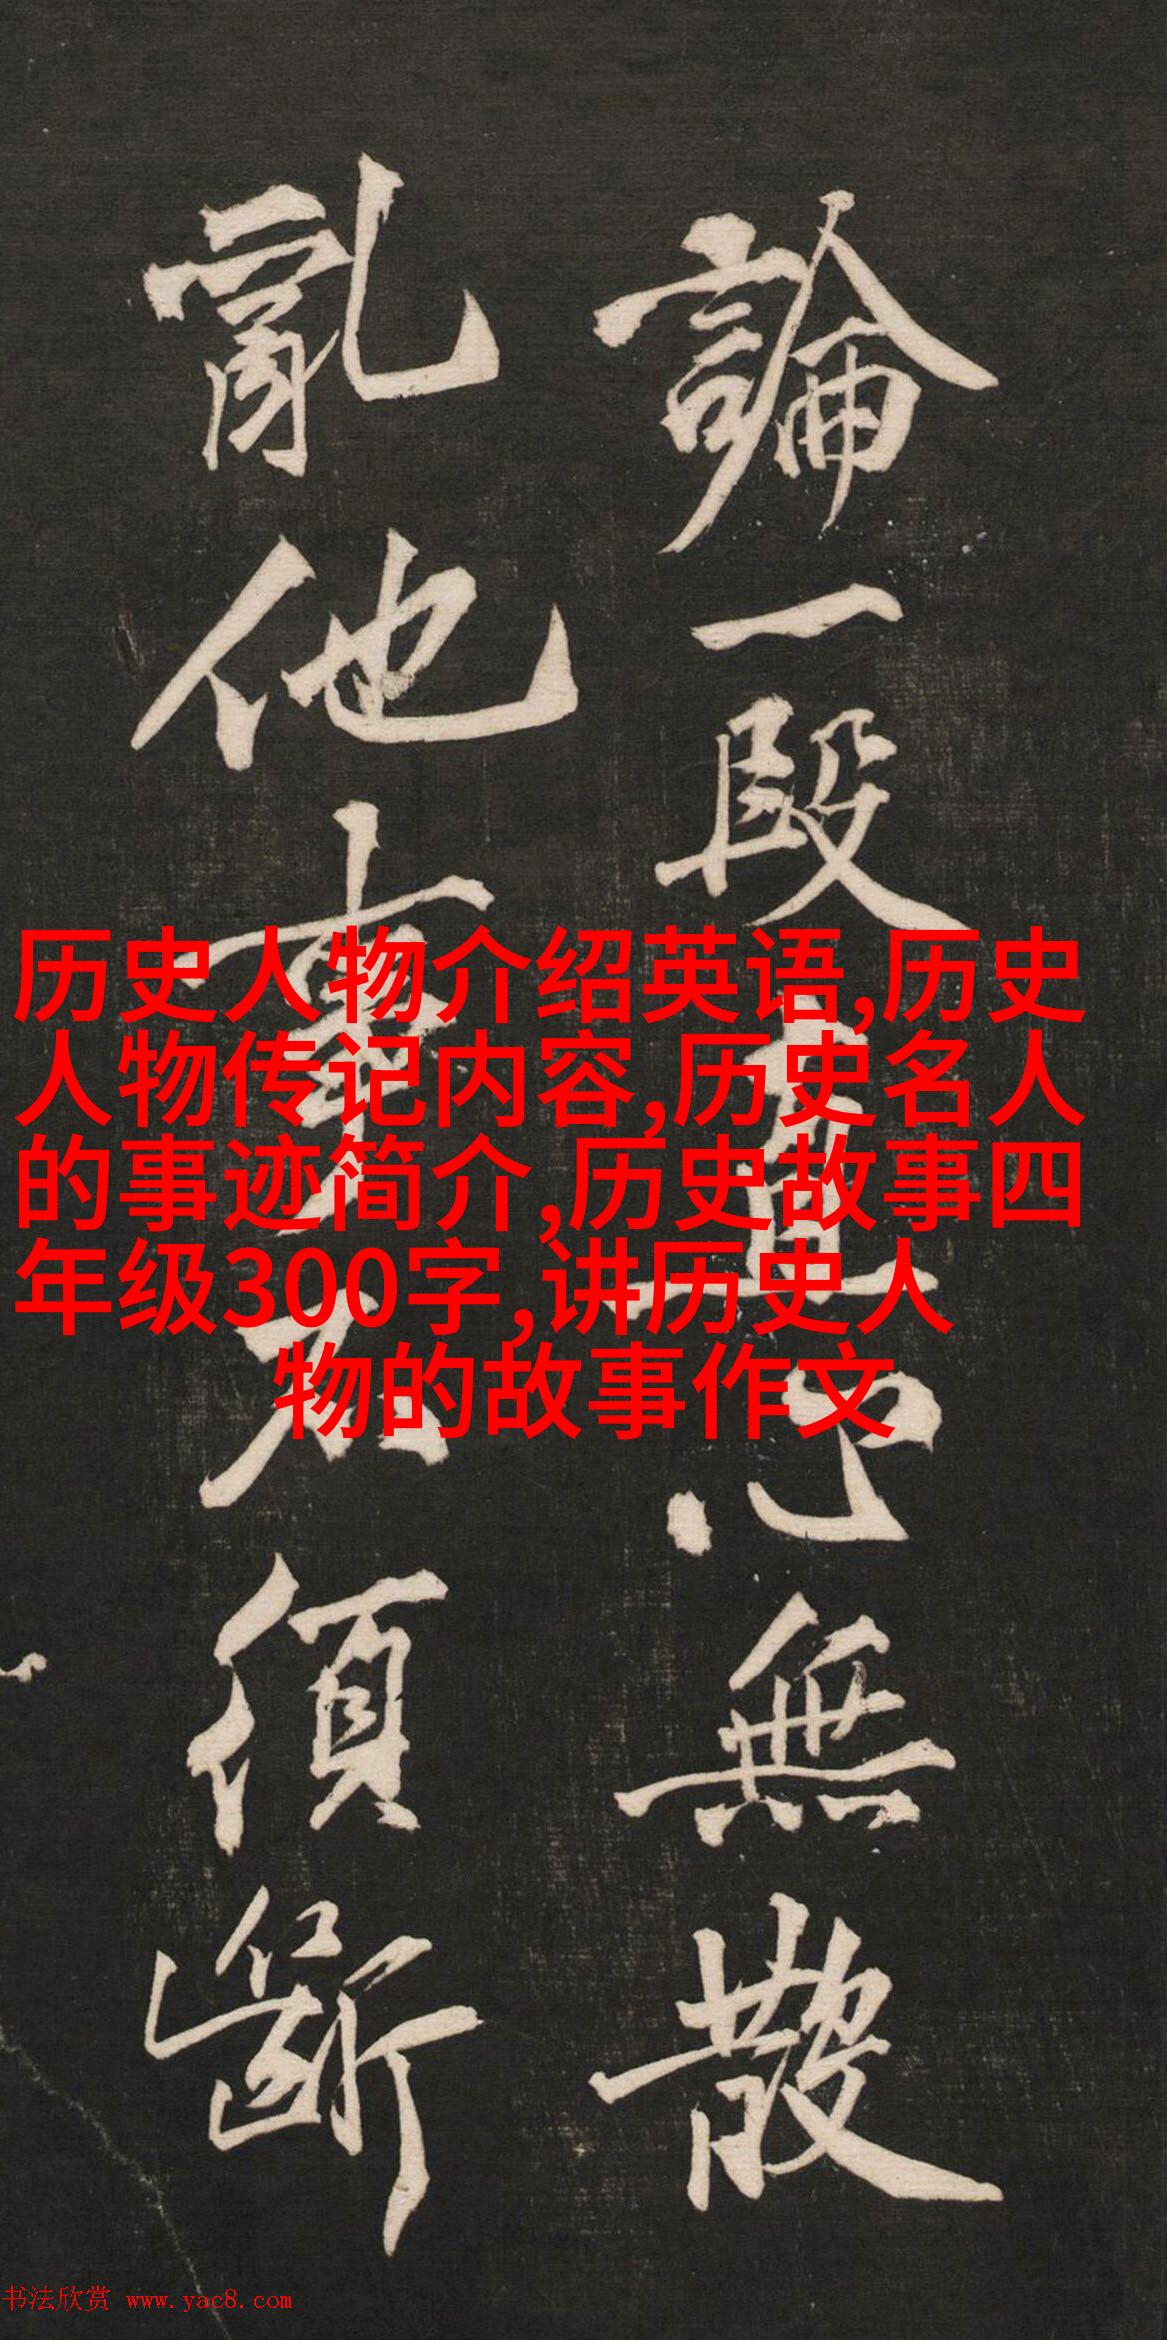 論一段心無散
亂他事須斷
历史人物介绍英语,历史
人物传记内容,历史名人
的事迹简介,历史故事四
年级300字,讲历史人
物的故事作文
书法欣赏 www.yac8.com